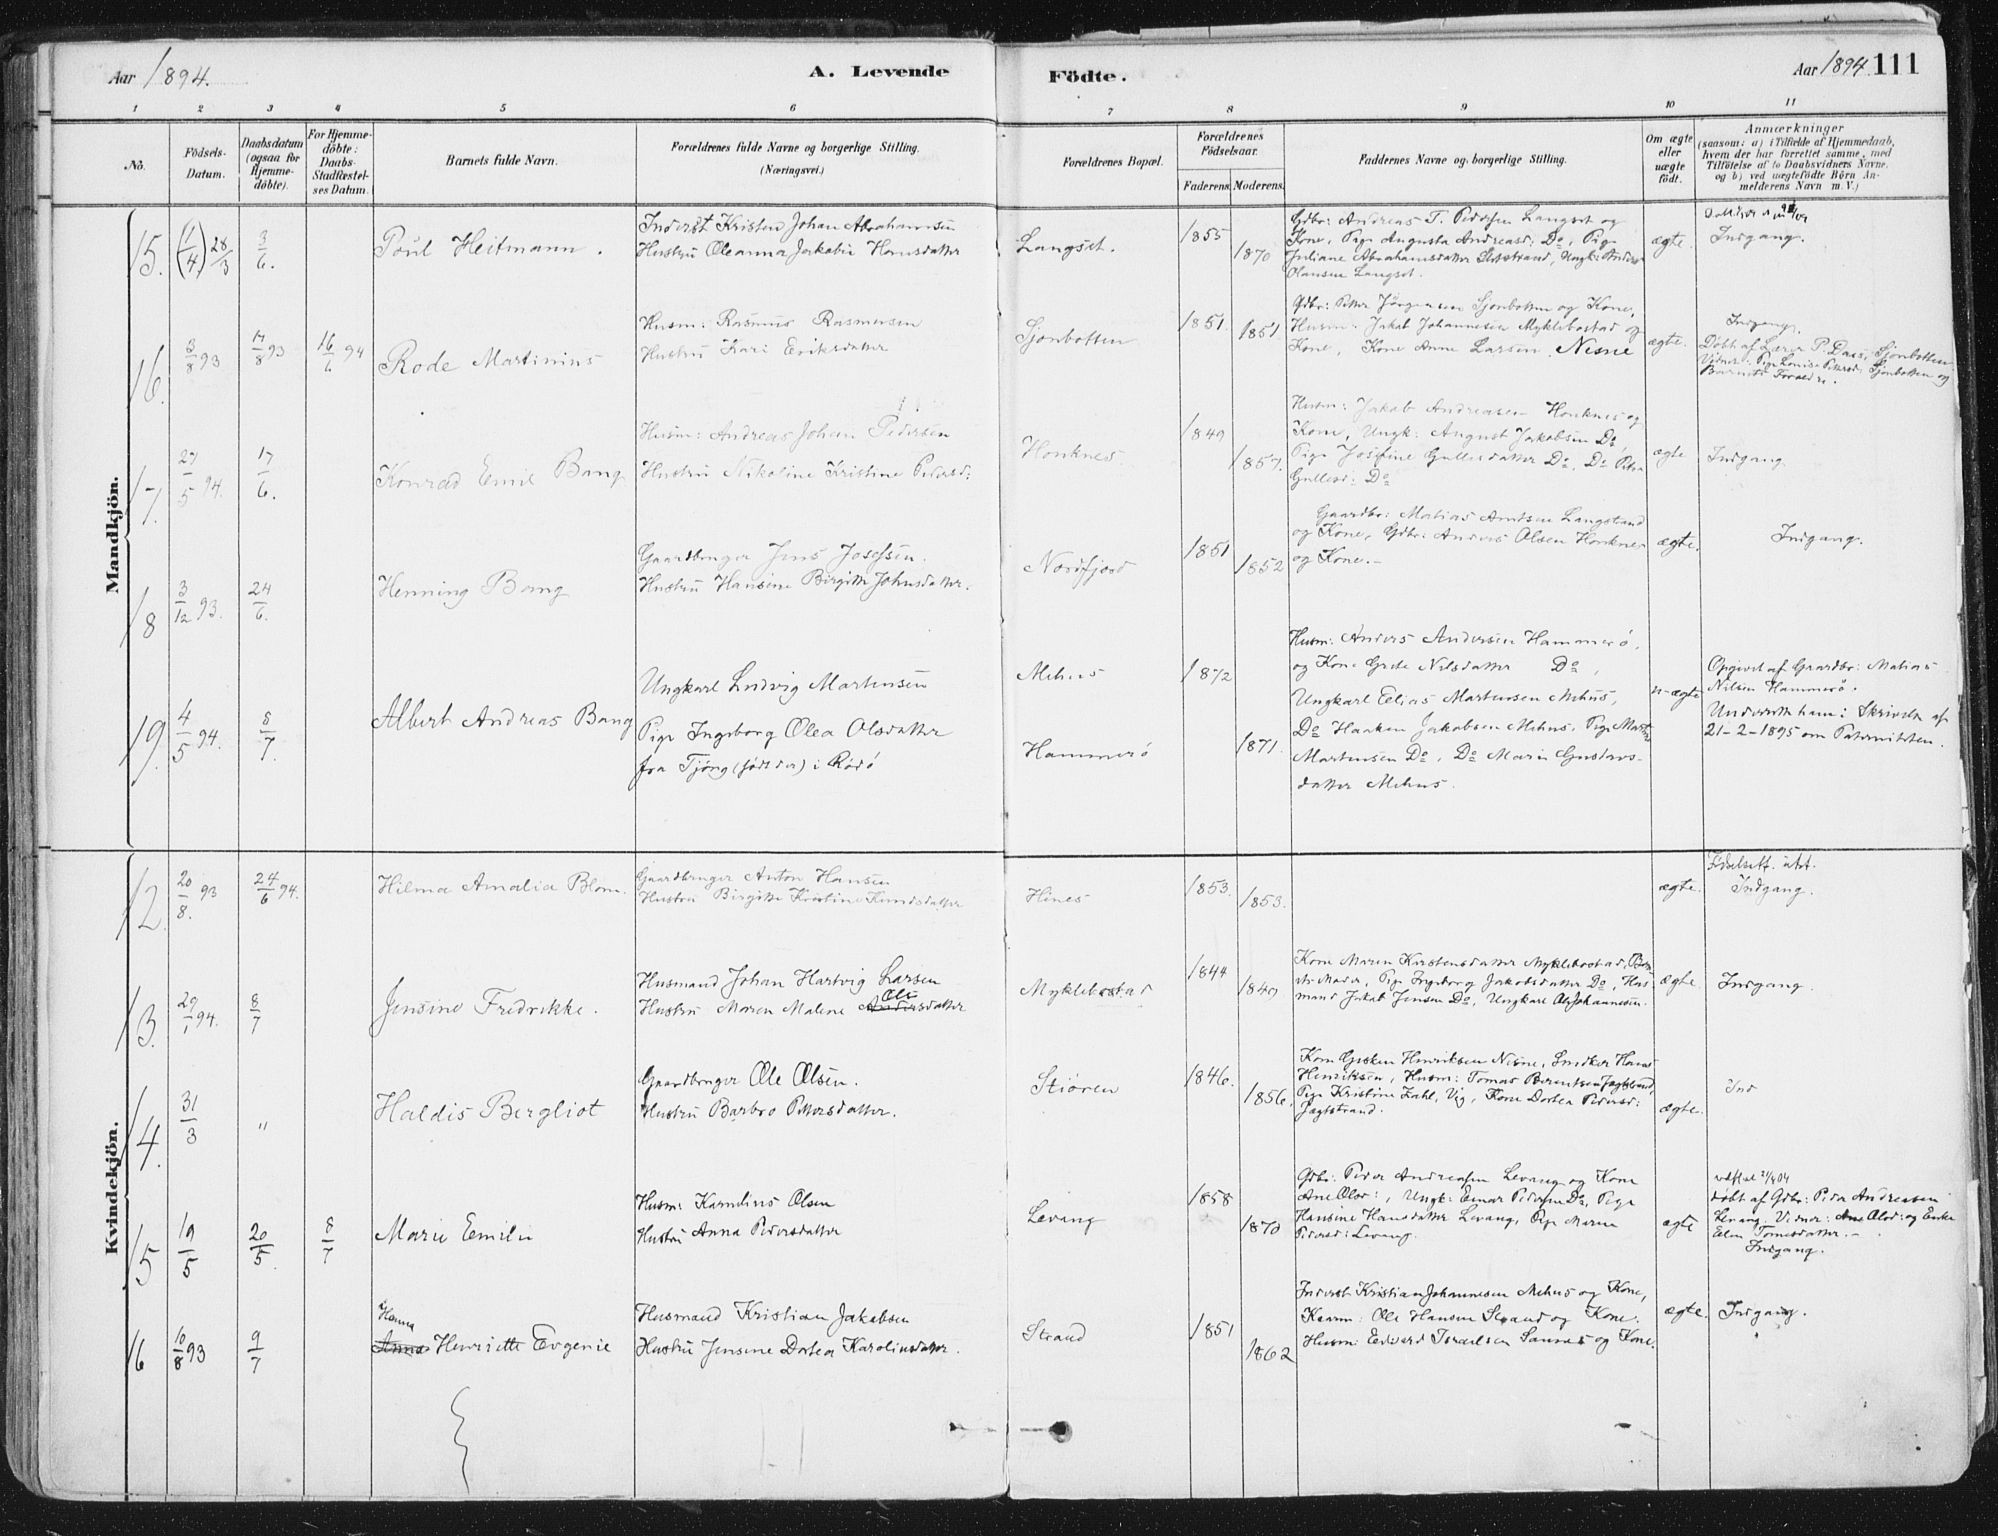 Aar 1894.
A. Levende
Födte.
Aar 1894. 111
1 2 3 4 5 6 7 8 9 10 11
No.
Födsels-Datum.
Daabsdatum (ogsaa for Hjemme-döbte).
For Hjemme-döbte: Daabs-Stadfæstel-ses Datum.
Barnets fulde Navn.
Forældrenes fulde Navne og borgerlige Stilling.
(Næringsvei.)
Forældrenes Bopæl.
Forældrenes Födselsaar.
Faderens. Moderens.
Faddernes Navne og borgerlige Stilling.
Om ægte eller uægte födt.
Anmærkninger
(saasom: a) i Tilfælde af Hjemmedaab,
hvem der har forrettet samme, med
Tilföielse af to Daabsvidners Navne,
og b) ved uægtefödte Börn An-
melderens Navn m. V.)
Mandkjön.
15. (1/4) 28/3 3/6.
Poul Heitmann.
Inderst Kristen Johan Abrahamsen
Hustru Oleanna Jakobie Hansdatter
Langset.
1855
1870
Gdbr: Andreas T. Pedersen Langset og
Kone, Pige Augusta Andreasd: Do, Pige
Juliane Abrahamsdatter Slotstrand, Ungk: Anders
Olausen Langset.
ægte.
Indgang.
16. 3/8 93 17/8 93 16/6 94
Rode Martinius
Husm: Rasmus Rasmussen
Hustru Kari Eriksdatter
Sjonbotten
1851.
1851.
Gdbr: Petter Jörgensen Sjonbotten og Kone,
Husm: Jakob Johannesen Myklebostad og
Kone, Kone Anne Larsen Nesne
ægte.
Indgang.
Döbt af Lærer P. Daes, Sjonbotten
Vidner: Pige Lovise Pettersd, Sjonbotten og
Barnets Forældre.
17. 27/5 94. 17/6.
Konrad Emil Bang
Husm: Andreas Johan Pedersen
Hustru Nikoline Kristine Pedersd:
Honknes.
1849
1857.
Husm: Jakob Andreasen Honknes og
Kone, Ungk: August Jakobsen Do,
Pige Josefine Gullesdatter Do, Do Petra
Gullesd: Do
ægte
Indgang.
18 3/12 93. 24/6.
Henning Bang
Gaardbruger Jens Josefsen.
Hustru Hansine Birgitte Johnsdatter.
Nordfjord
1851
1852
Gaardbr: Matias Arntsen Langstrand
og Kone, Gdbr: Anders Olsen Honknes
og Kone.-
ægte.
Indgang.
19. 4/5 94. 8/7.
Albert Andreas Bang
Ungkarl Ludvig Martensen
Pige Ingeborg Olea Olsdatter
fra Tjöng (födt der) i Rödö
Mehus
Hammerö
1872
1871.
Husm: Anders Andersen Hammerö,
og Kone Grete Nilsdatter Do,
Ungkarl Elias Martensen Mehus,
Do Haaken Jakobsen Mehus, Pige Marta
Martensen Do, Do Marie Gustavs-
datter Mehus.
u-ægte
Opgivet af Gaardbr: Matias
Nilsen Hammerö.
21-2-1895 om Paterniteten.
Kvindekjön.
12. 20/8. 93 24/6 94.
Hilma Amalia Blom.
Gaardbruger Anton Hansen
Hustru Birgitte Kristine Knudsdatter
Hines
1853.
1853.
ægte.
Födselsatt. utst.
Indgang.
13. 29/1 94. 8/7
Jensine Fredrikke.
Husmand Johan Hartvig Larsen
Ols
Hustru Maren Malene Andersdatter
Myklebostad
1844
1849
Kone Maren Kirstensdatter Myklebostad, Bar-
nets Moder, Pige Ingeborg Jakobsdatter Do, Hus-
mand Jakob Jensen Do, Ungkarl Ole Johannesen.
ægte.
Indgang.
14. 31/3 "
Haldis Bergliot
Gaardbruger Ole Olsen.
Hustru Barbro Pettersdatter.
Stiören
1846.
1856.
Kone Gurken Henriksen Nesne, Snedker Hans
Henriksen, Husm: Tomas Berentsen Jagtstrand,
Pige Kristine Zahl, Vig, Kone Dortea Pedersd:
Jagtstrand.
ægte.
Ind
15 19/5 20/5. 8/7
Marie Emilie
Husm: Karnelius Olsen
Hustru Anna Pedersdatter
Levang
1858
1870
Gdbr: Peder Andreasen Levang og Kone
Ane Olsd:, Ungk: Einar Pedersen Do, Pige
Hansine Hansdatter Levang, Pige Maren
Pedersd: Levang.
ægte
döbt af Gdbr: Peder Andreasen
Levang. Vidner: Ane Olsd: og Enke
Elen Tomesdatter.-
Indgang.
16 10/8 93 9/7
Hanna
Anna Henriette Evgenie
Husmand Kristian Jakobsen
Hustru Jensine Dortea Karoliusdatter.
Strand
1851
1862
Inderst Kristian Johannesen Mehus og Kone,
Kaarm: Ole Hansen Strand og Kone.
Husm: Edvard Israelsen Saunes og Kone.
ægte.
Indgang.